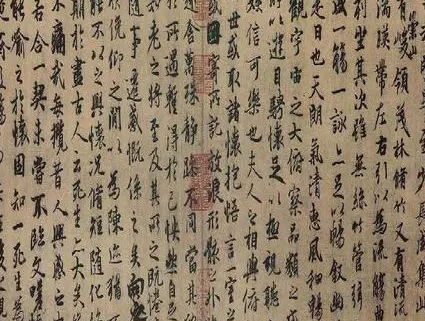 至少長咸集
有崇山峻領茂林脩竹又有清流
湍暎帶左右引以為流觴曲
列坐其次雖無絲竹管弦
盛一觴一詠亦足以暢敘幽
是日也天朗氣清惠風和暢
觀宇宙之大俯察品類之
所以遊目騁懷足以極視聽
娛信可樂也夫人之相與俯
世或取諸懷抱悟言一室之
或因寄所託放浪形骸之外
趣舍萬殊靜躁不同當其
於所遇蹔得於己怏然自
知老之將至及其所之既惓
隨事遷感慨係之矣向之
欣俛仰之間以為陳迹猶
能不以之興懷況脩短隨化
期於盡古人云死生亦大矣
不痛哉每攬昔人興感之由
若合一契未嘗不臨文嗟
能喻之於懷固知一死生為